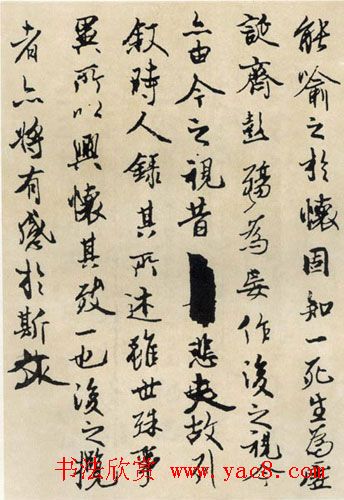 能喻之於懷固知一死生為虛
誕齊彭殤為妄作後之視今
亦由今之視昔悲夫故列
敘時人錄其所述雖世殊事
異所以興懷其致一也後之攬
者亦將有感於斯文
书法欣赏 www.yac8.com